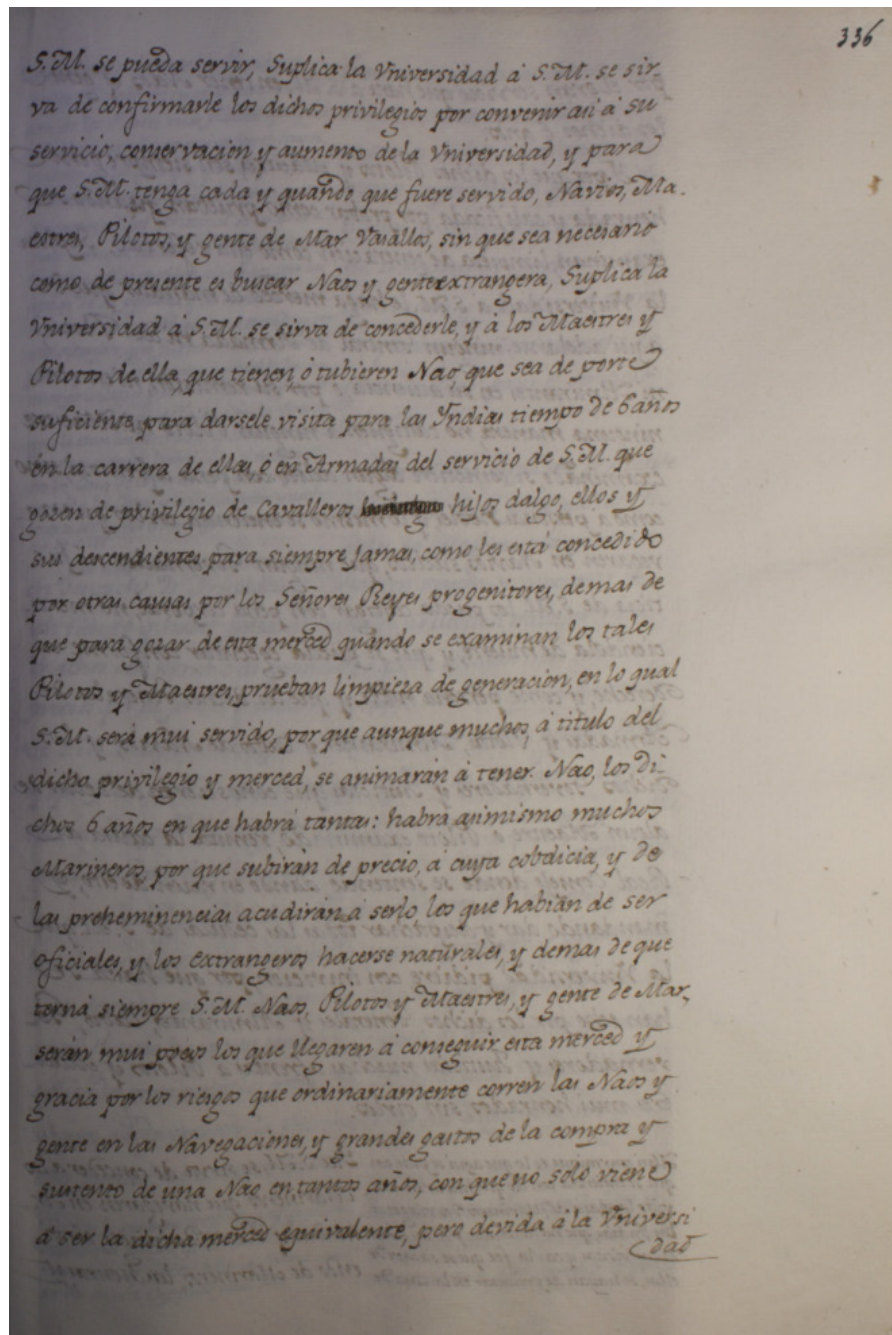 336
S.M. se pueda servir, Suplica la Vniversidad á S.M. se sir-
va de confirmarle los dichos privilegios por convenir asi á su
servicio, conservacion y aumento de la Vniversidad, y para
que S.M. tenga cada y quando que fuere servido, Navios, Ma-
estres, Pilotos, y gente de Mar Vasallos, sin que sea necesario
como de presente es buscar Naos y gente extrangera, Suplica la
Vniversidad á S.M. se sirva de concederle, y á los Maestres y
Pilotos de ella, que tienen, ó tubieren Nao, que sea de porte
suficiente para darsele visita para las Yndias tiempo de 6 años
en la carrera de ellas, ó en Armadas del servicio de S.M. que
gozen de privilegio de Cavalleros hijos dalgo, ellos y
sus descendientes para siempre jamas, como les está concedido
por otras causas por los Señores Reyes progenitores, demas de
que para gozar de esta merced quando se examinan los tales
Pilotos y Maestres, prueban limpieza de generacion, en lo qual
S.M. será mui servido, por que aunque muchos, á titulo del
dicho privilegio y merced, se animarán á tener Nao, los di-
chos 6 años en que habrá tantas: habrá asimismo muchos
Marineros, por que subirán de precio, á cuya cobdicia, y de
las preheminencias acudirán á serlo, los que habian de ser
oficiales, y los extrangeros hacerse naturales, y demas de que
terná siempre S.M. Naos, Pilotos y Maestres, y gente de Mar,
serán mui pocos los que llegaren á conseguir esta merced y
gracia por los riesgos que ordinariamente corren las Naos y
gente en las Navegaciones, y grandes gastos de la compra y
sustento de una Nao en tantos años, con que no solo viene
á ser la dicha merced equivalente, pero devida á la Vniversi
dad